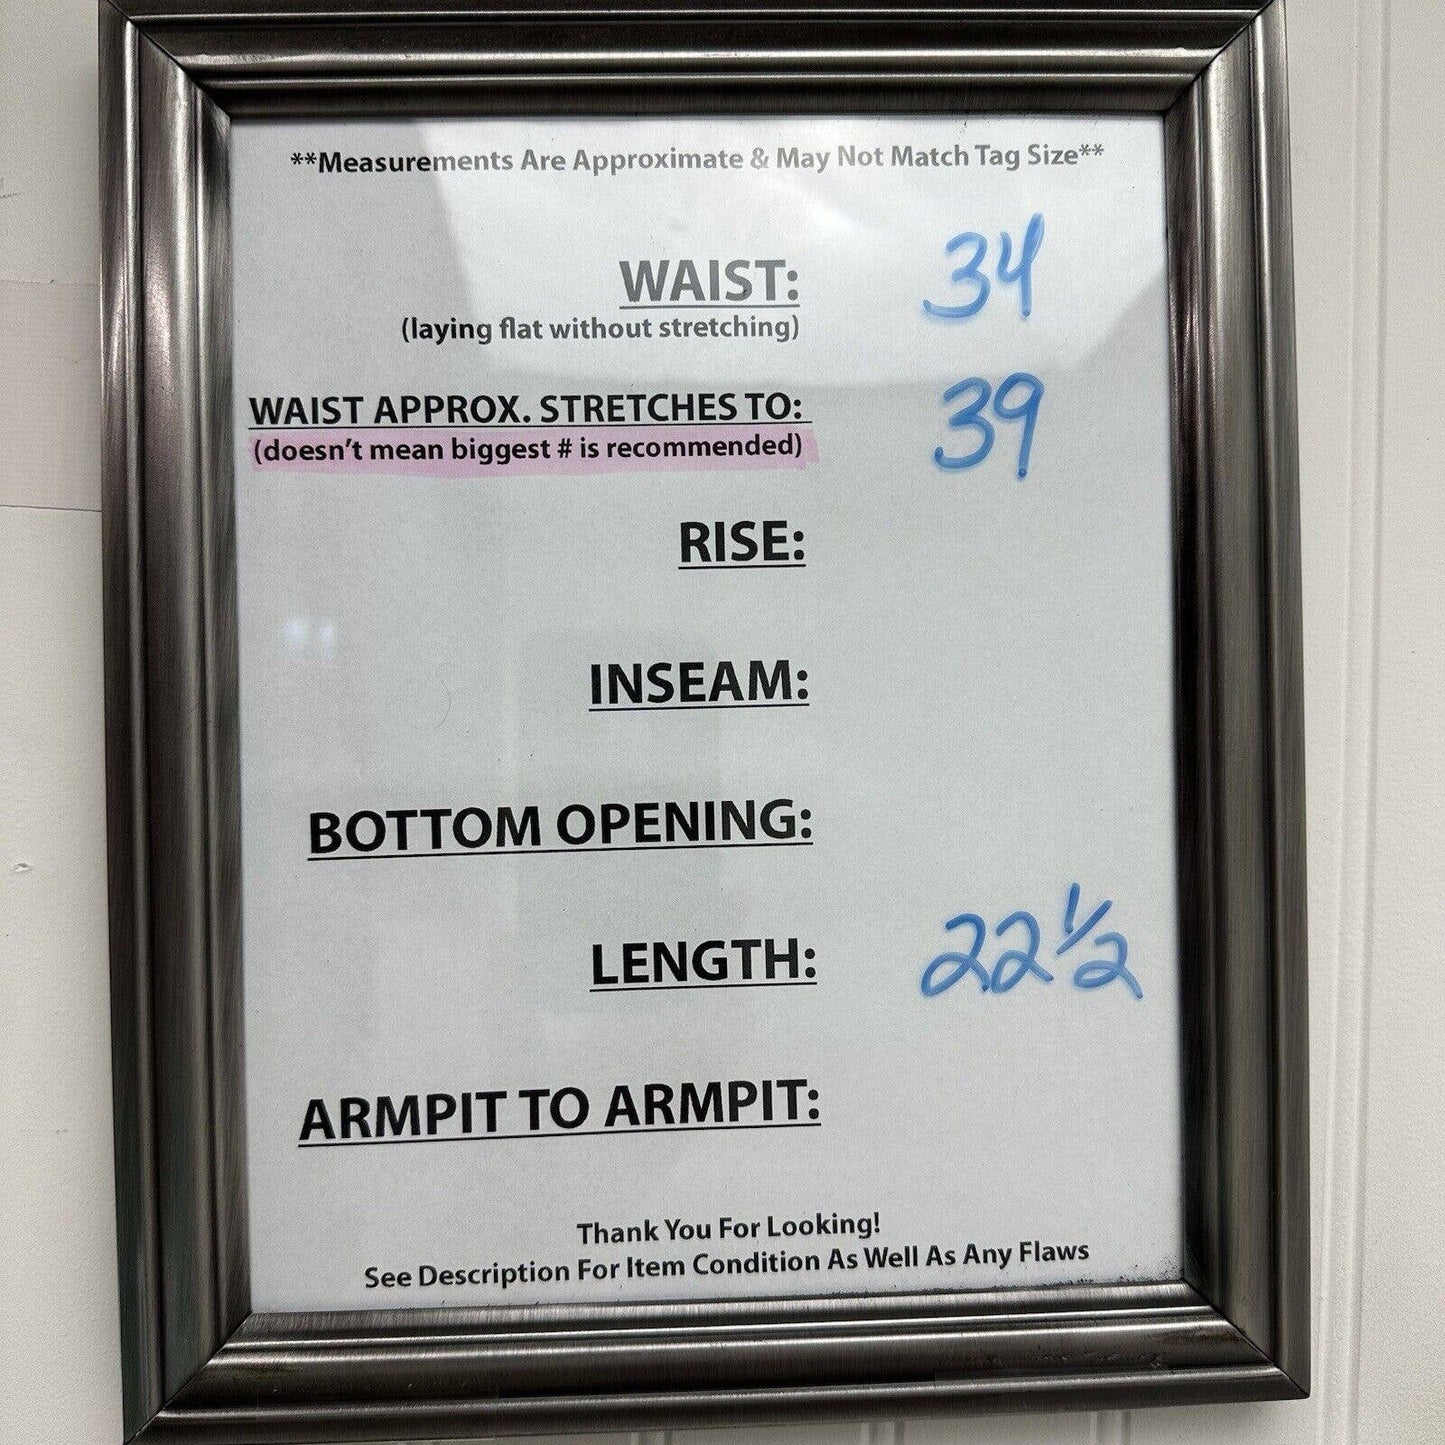 **Measurements Are Approximate & May Not Match Tag Size**
WAIST: 34
(laying flat without stretching)
WAIST APPROX. STRETCHES TO: 39
(doesn't mean biggest # is recommended)
RISE:
INSEAM:
BOTTOM OPENING:
LENGTH: 22 1/2
ARMPIT TO ARMPIT:
Thank You For Looking!
See Description For Item Condition As Well As Any Flaws